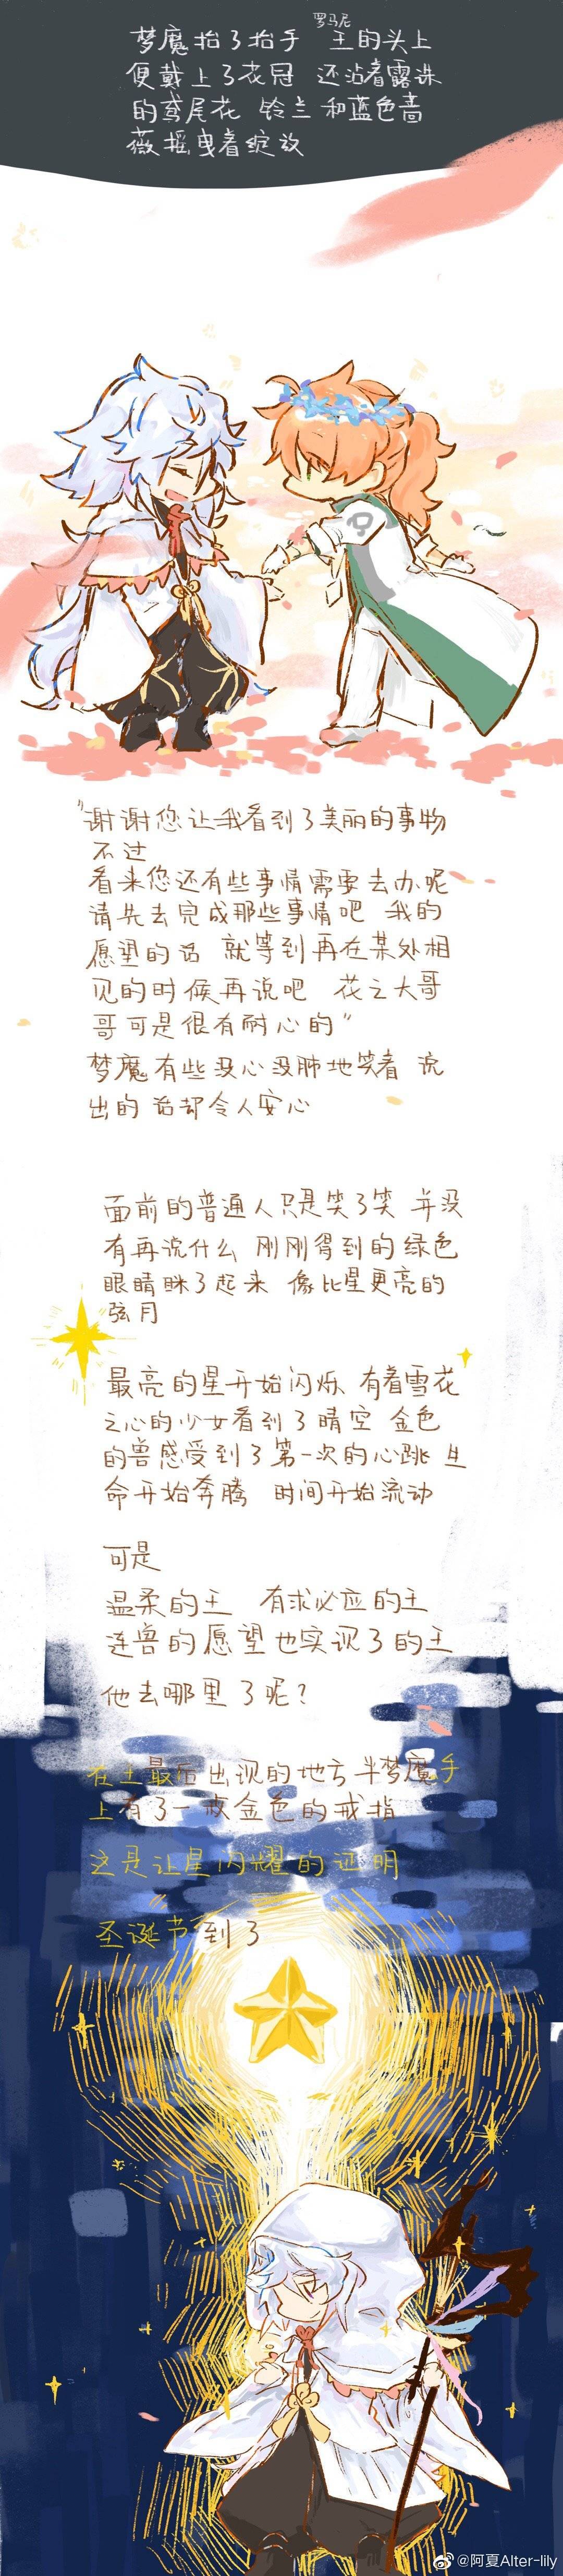 罗马尼
梦魔抬了抬手 王的头上
便戴上了花冠 还沾着露珠
的鸢尾花 铃兰 和蓝色蔷
薇摇曳着绽放
"谢谢您让我看到了美丽的事物
不过
看来您还有些事情需要去办呢
请先去完成那些事情吧 我的
愿望的话 就等到再在某处相
见的时候再说吧 花之大哥
哥可是很有耐心的"
梦魔有些没心没肺地笑着 说
出的话却令人安心
面前的普通人只是笑了笑 并没
有再说什么 刚刚得到的绿色
眼睛眯了起来 像比星更亮的
弦月
最亮的星开始闪烁 有着雪花
之心的少女看到了晴空 金色
的兽感受到了第一次的心跳 生
命开始奔腾 时间开始流动
可是
温柔的王 有求必应的王
连兽的愿望也实现了的王
他去哪里了呢?
在王最后出现的地方 半梦魔手
上有了一枚金色的戒指
这是让星闪耀的证明
圣诞节到了
@阿夏Alter-lily